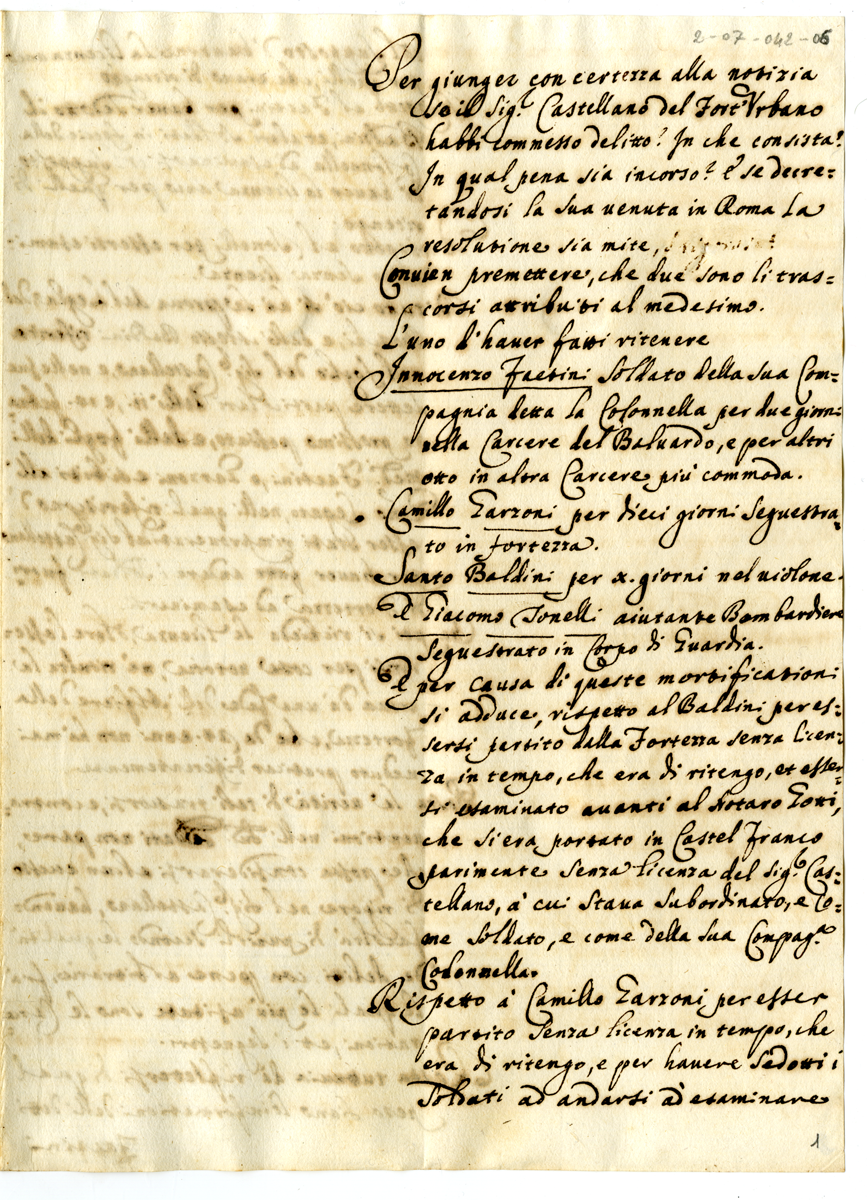 2-07-042-06
Per giunger con certezza alla notizia
se il Sig.r Castellano del Fort'Urbano
habbi commesso delitto? In che consista?
In qual pena sia incorso? E se decre=
tandosi la sua venuta in Roma la
resolutione sia mite,
Convien premettere, che due sono li tras=
corsi attribuiti al medesimo.
L'uno d'haver fatti ritenere
Innocenzo Faetini soldato della sua Com=
pagnia detta la Colonnella per due giorni
nella Carcere del Baluardo, e per altri
otto in altra Carcere più commoda.
Camillo Garzoni per dieci giorni sequestra=
to in fortezza.
Santo Baldini per x. giorni nel
E Giacomo Tonelli aiutante Bombardiere
sequestrato in Corpo di Guardia.
E per causa di queste mortificationi
si adduce, rispetto al Baldini per es=
sersi partito dalla Fortezza senza licen=
za in tempo, che era di ritengo, et esser=
si esaminato avanti al Notaro Gotti,
che si era portato in Castel Franco
parimente senza licenza del Sig.r Cas=
tellano, à cui stava subordinato, e co=
me soldato, e come della sua Compag.a
Colonnella.
Rispetto à Camillo Garzoni per esser
partito senza licenza in tempo, che
era di ritengo, e per havere sedotti i
Soldati ad andarsi ad esaminare
1